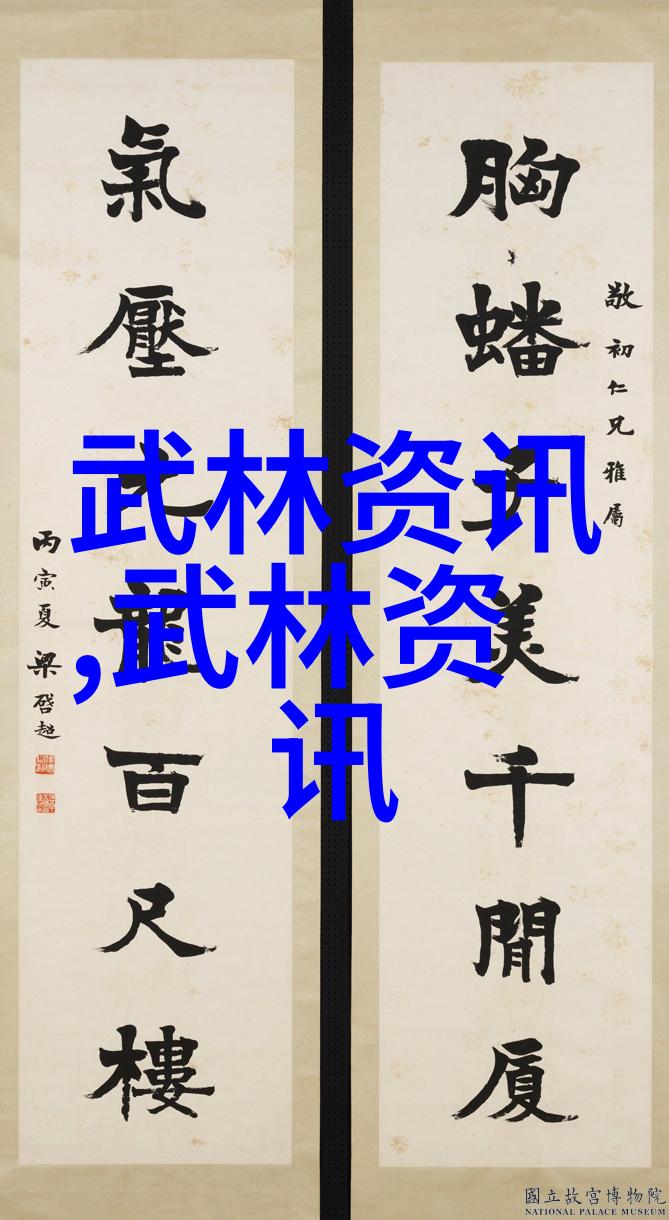 武林资讯
,武林资
讯
敬初仁兄雅屬
胸蟠子美千閒厦
氣壓元龍百尺樓
丙寅夏 梁啓超
國立故宮博物院
NATIONAL PALACE MUSEUM